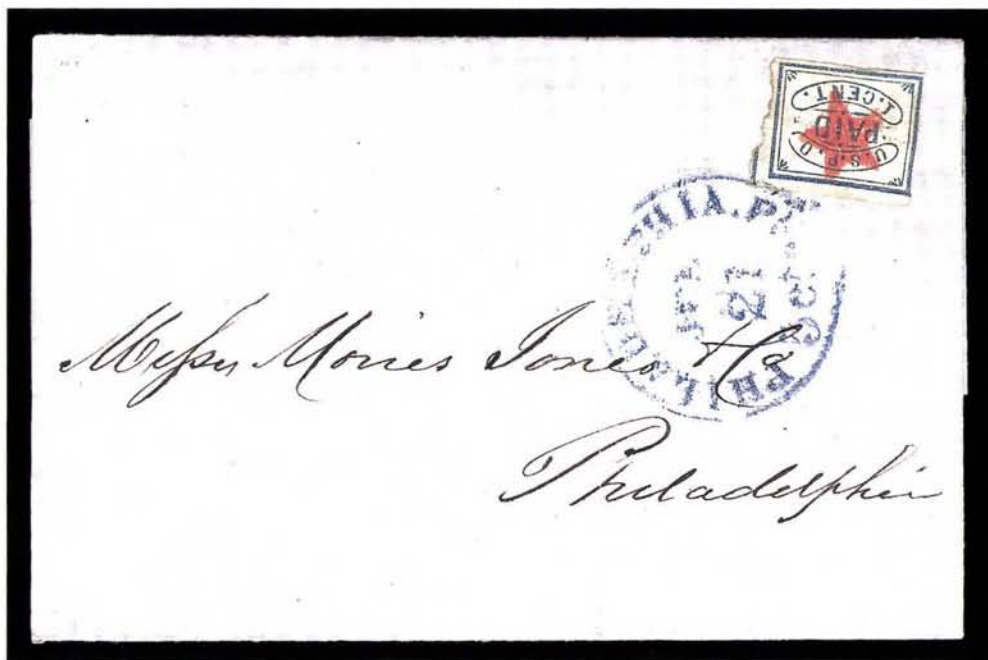 U.S.P.O.
PAID
1.CENT.
PHILADELPHIA. Pa.
21
Messrs Morris Jones & Co
Philadelphia